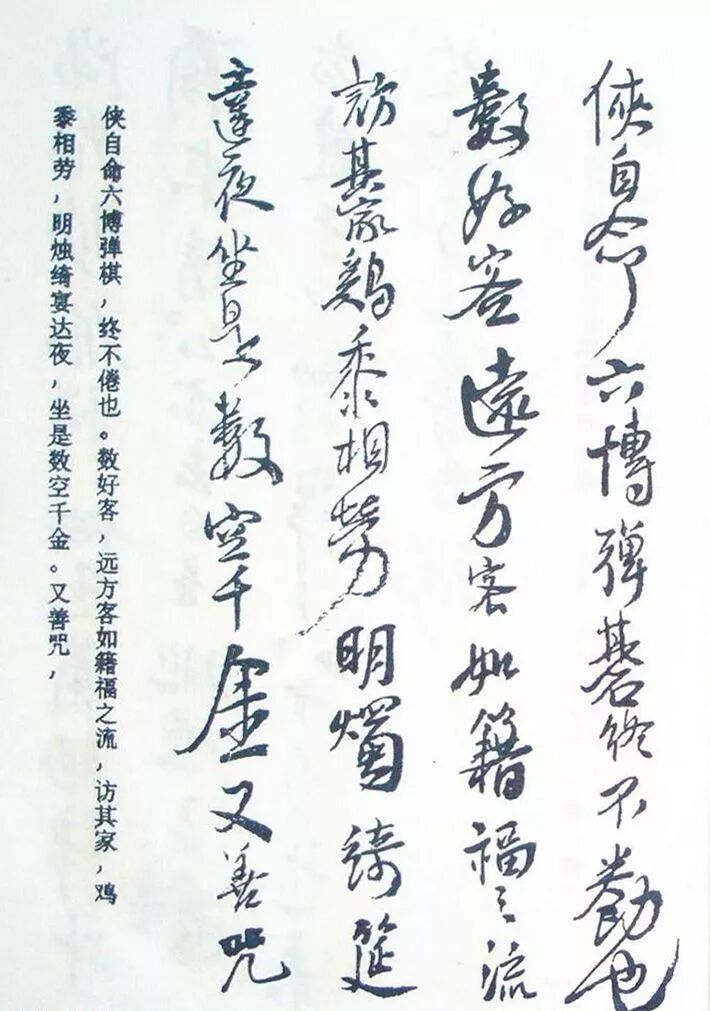 侠自命六博弹碁终不勌也
數好客遠方客如籍福之流
訪其家鷄黍相勞明燭綺筵
達夜坐是數空千金又善咒
侠自命六博弹棋，终不倦也。数好客，远方客如籍福之流，访其家，鸡
黍相劳，明烛绮宴达夜，坐是数空千金。又善咒，